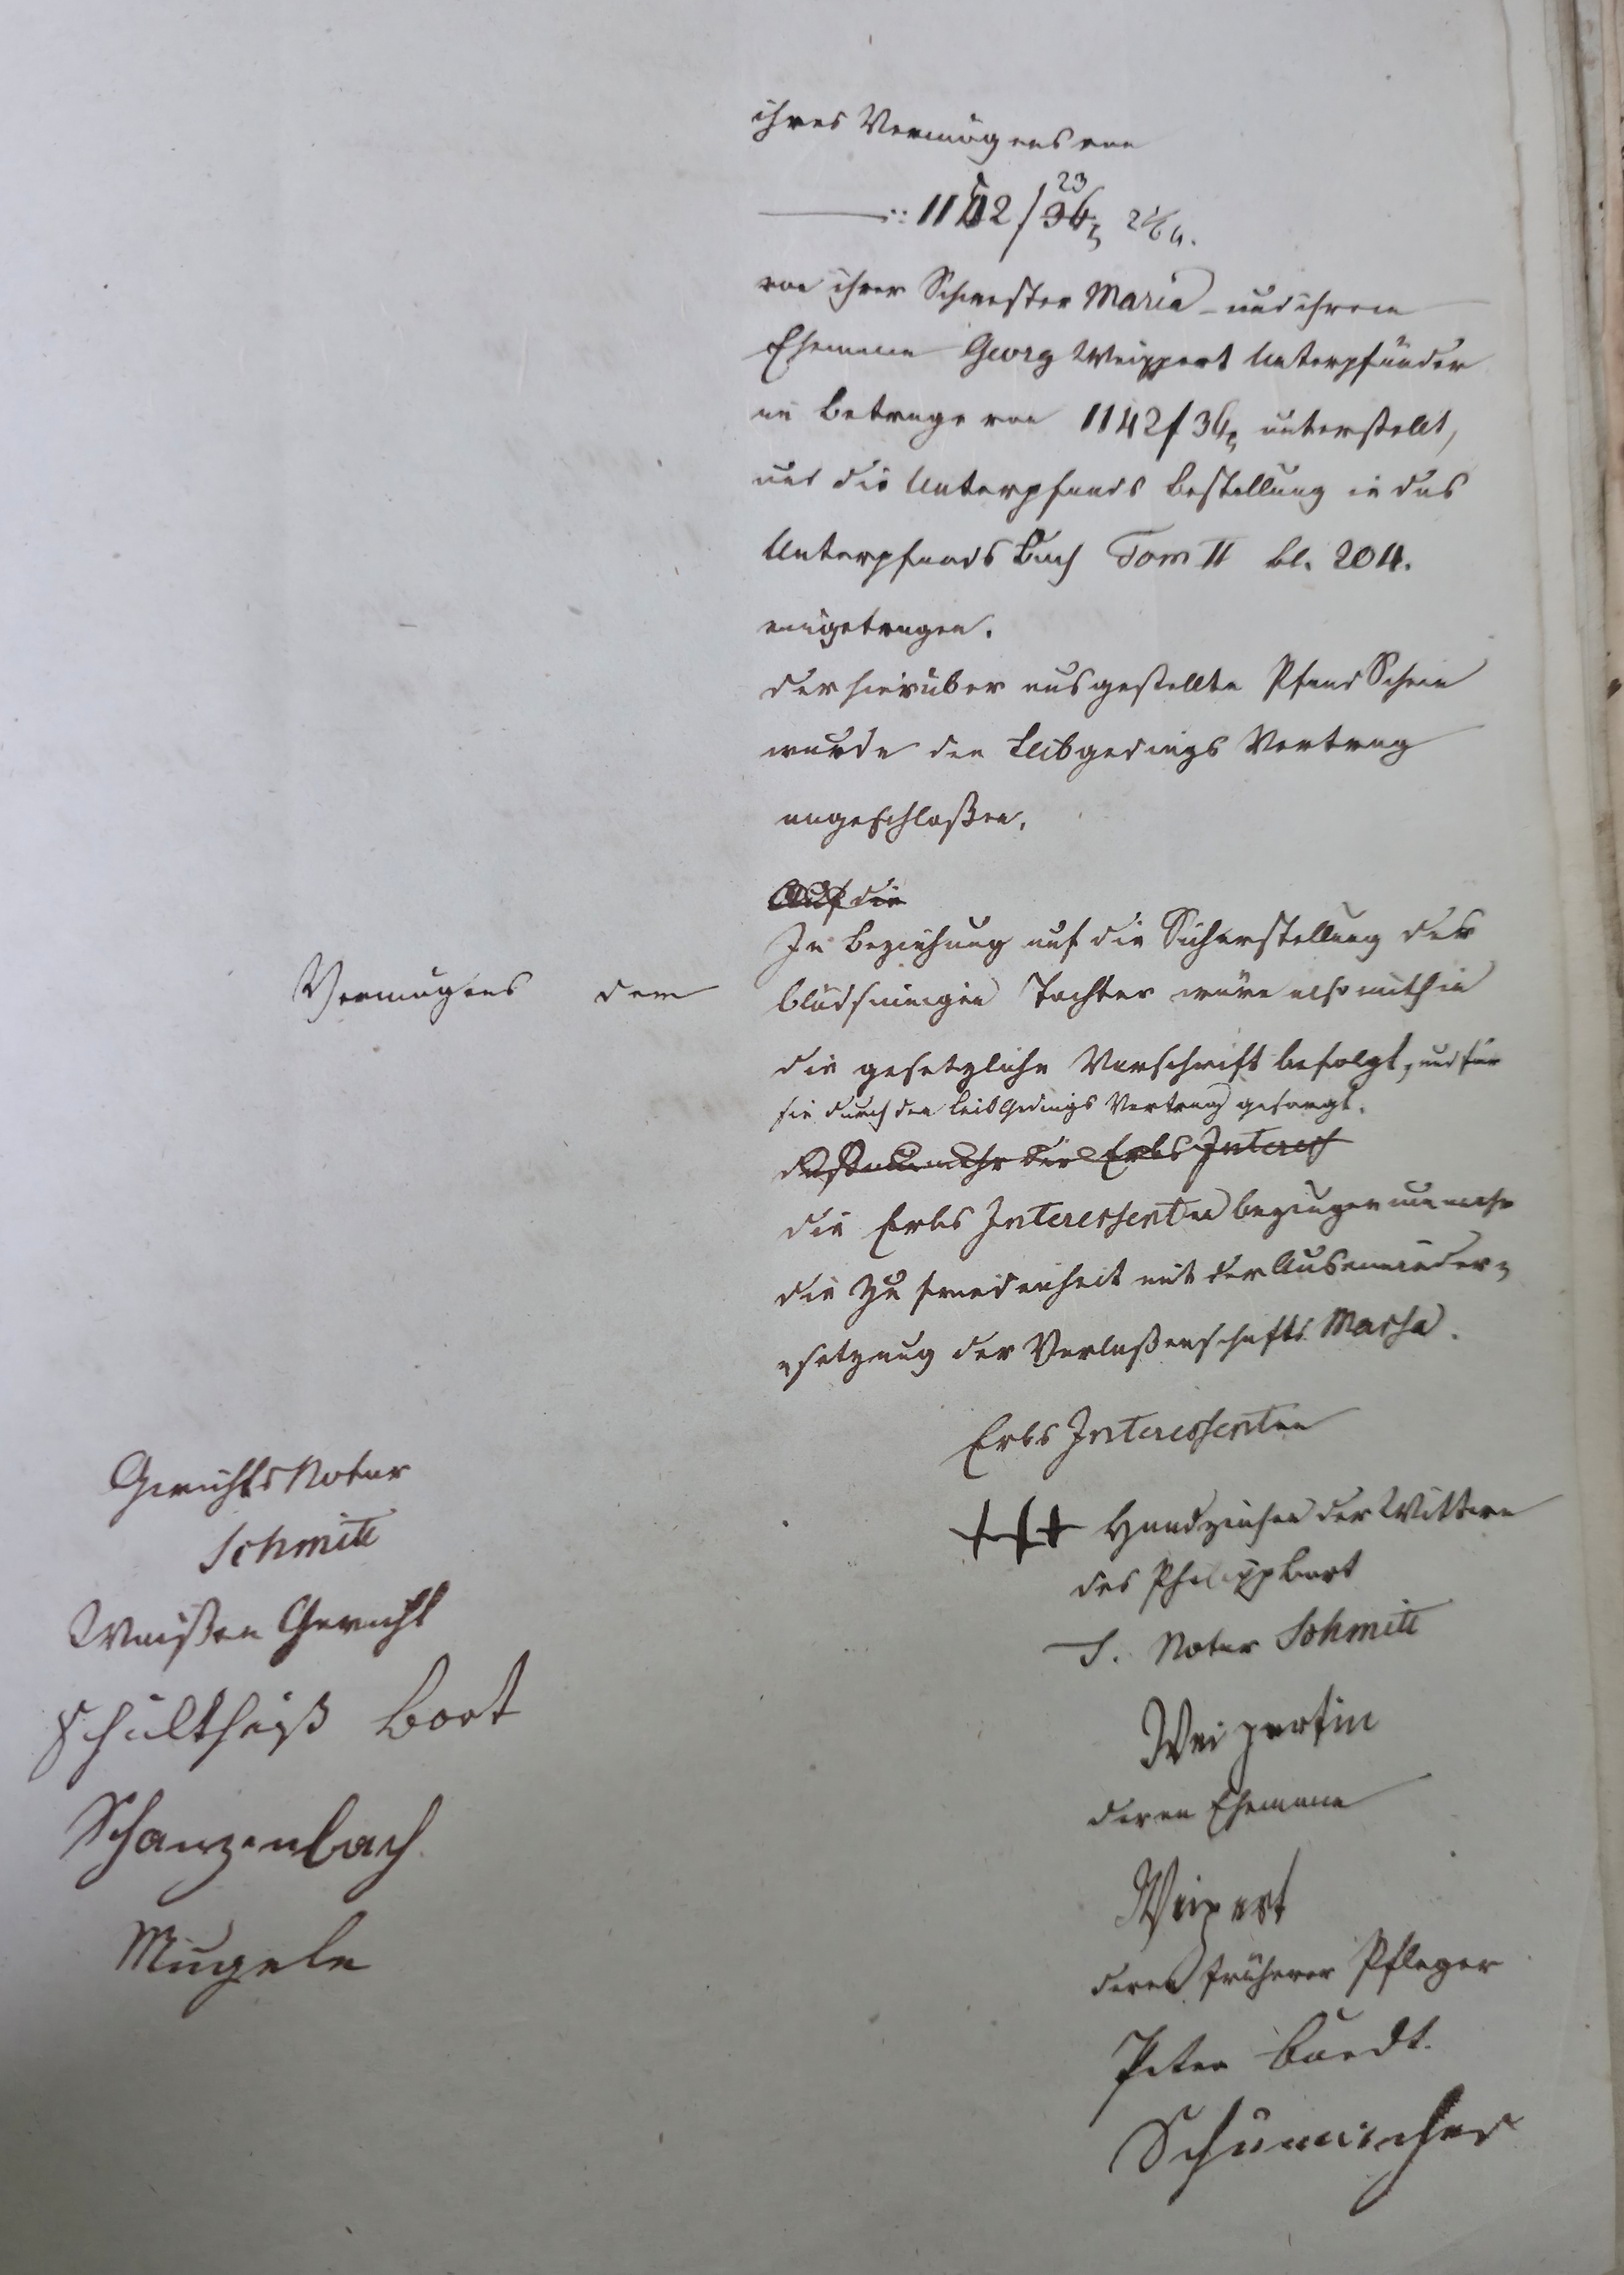 ihres Vermögens von
1152 f 23 36 x 2 1/6 h.
von ihrer Schwester Maria und ihrem
Ehemann Georg Weippert Unterpfänder
im Betrage von 1142 f 36 x unterstellt,
und die Unterpfands Bestellung in das
Unterpfands Buch Tom II bl. 204.
eingetragen.
der hierüber ausgestellte Pfand Schein
wurde den Leibgedings Vertrag
angeschloßen.
Auf die
In Beziehung auf die Sicherstellung des
Vermögens der blödsinnigen Tochter wäre also mithin
die gesetzliche Vorschrift befolgt, und für
sie durch den Leib Gedings Vertrag gesorgt.
nunmehr die Erbs Interess
die Erbs Interessenten bezeugen nunmehr
die Zufriedenheit mit der Auseinander-
setzung der Verlaßenschafts Massa.
Erbs Interessenten
+++ Handzeichen der Wittwe
des Philipp Bort
T. Notar Schmitt
Weipertin
deren Ehemann
Weipert
deren früherer Pfleger
Peter
GerichtsNotar
Schmitt
Waisen Gericht
Schultheiß Bort
Schanzenbach
Mugele